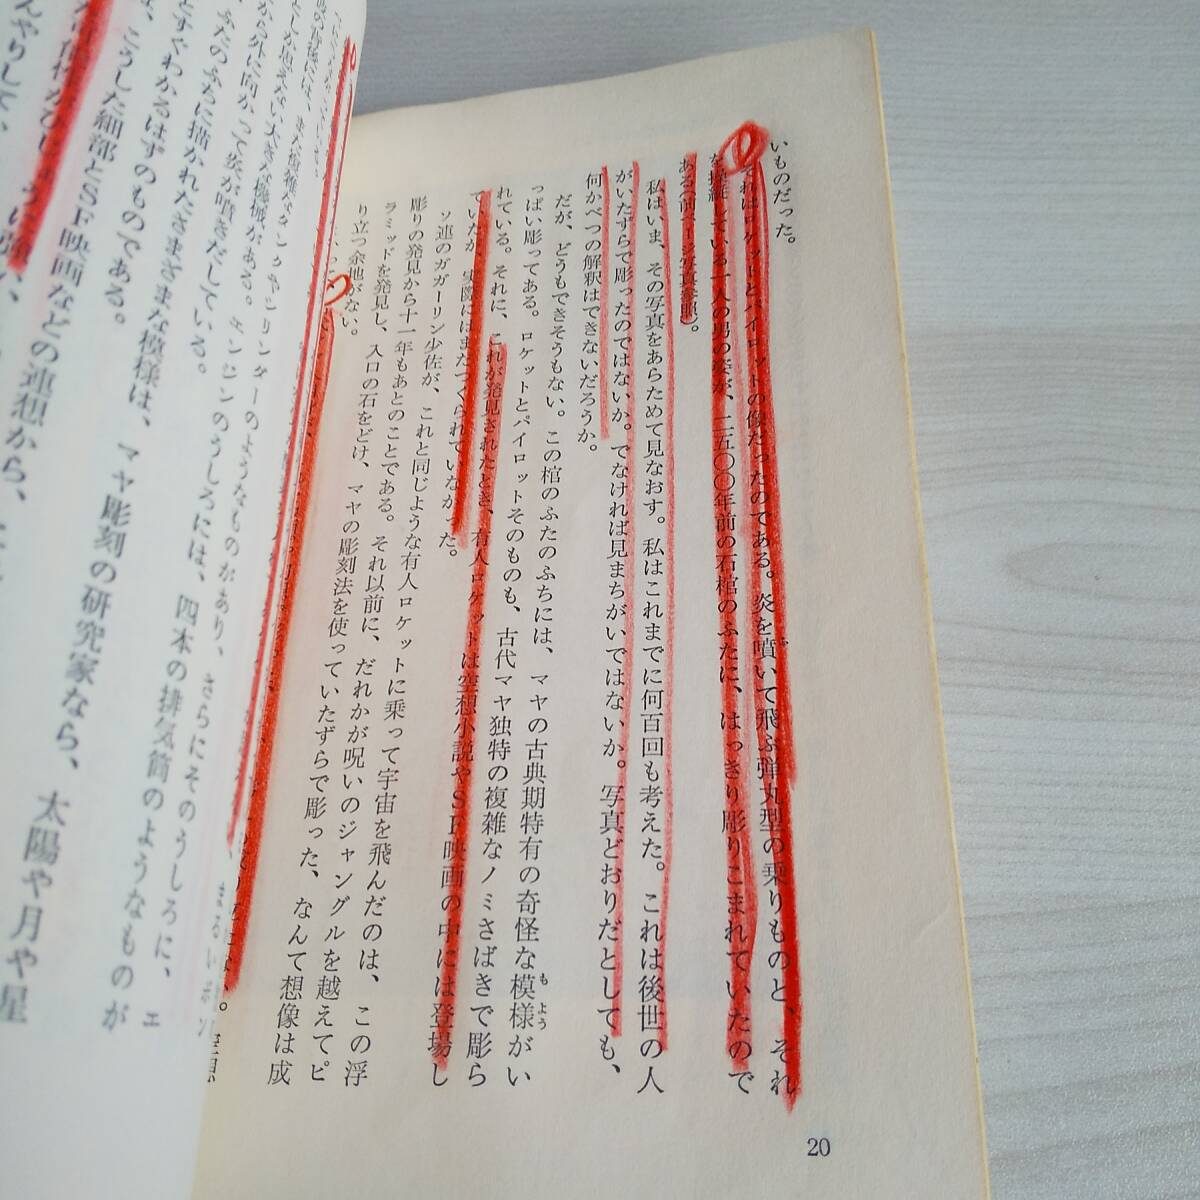 いものだった。
それはロケットとパイロットの像だったのである。炎を噴いて飛ぶ弾丸型の乗りものと、それ
を操縦している一人の男の姿が、二五〇〇年前の石棺のふたに、はっきり彫りこまれていたので
ある(前ページ写真参照)。
私はいま、その写真をあらためて見なおす。私はこれまでに何百回も考えた。これは後世の人
がいたずらで彫ったのではないか。でなければ見まちがいではないか。写真どおりだとしても、
何かべつの解釈はできないだろうか。
だが、どうもできそうもない。この棺のふたのふちには、マヤの古典期特有の奇怪な模様がい
もよう
っぱい彫ってある。ロケットとパイロットそのものも、古代マヤ独特の複雑なノミさばきで彫ら
れている。それに、これが発見されたとき、有人ロケットは空想小説やSF映画の中には登場し
ていたが、実際にはまだつくられていなかった。
ソ連のガガーリン少佐が、これと同じような有人ロケットに乗って宇宙を飛んだのは、この浮
彫りの発見から十一年もあとのことである。それ以前に、だれかが呪いのジャングルを越えてピ
ラミッドを発見し、入口の石をどけ、マヤの彫刻法を使っていたずらで彫った、なんて想像は成
り立つ余地がない。
20
としか思えない大きな機械がある。エンジンのうしろには、四本の排気筒のようなものが
から外に向かって炎が噴きだしている。
ふたのふちに描かれたさまざまな模様は、マヤ彫刻の研究家なら、太陽や月や星
とすぐわかるはずのものである。
こうした細部とSF映画などの連想から、